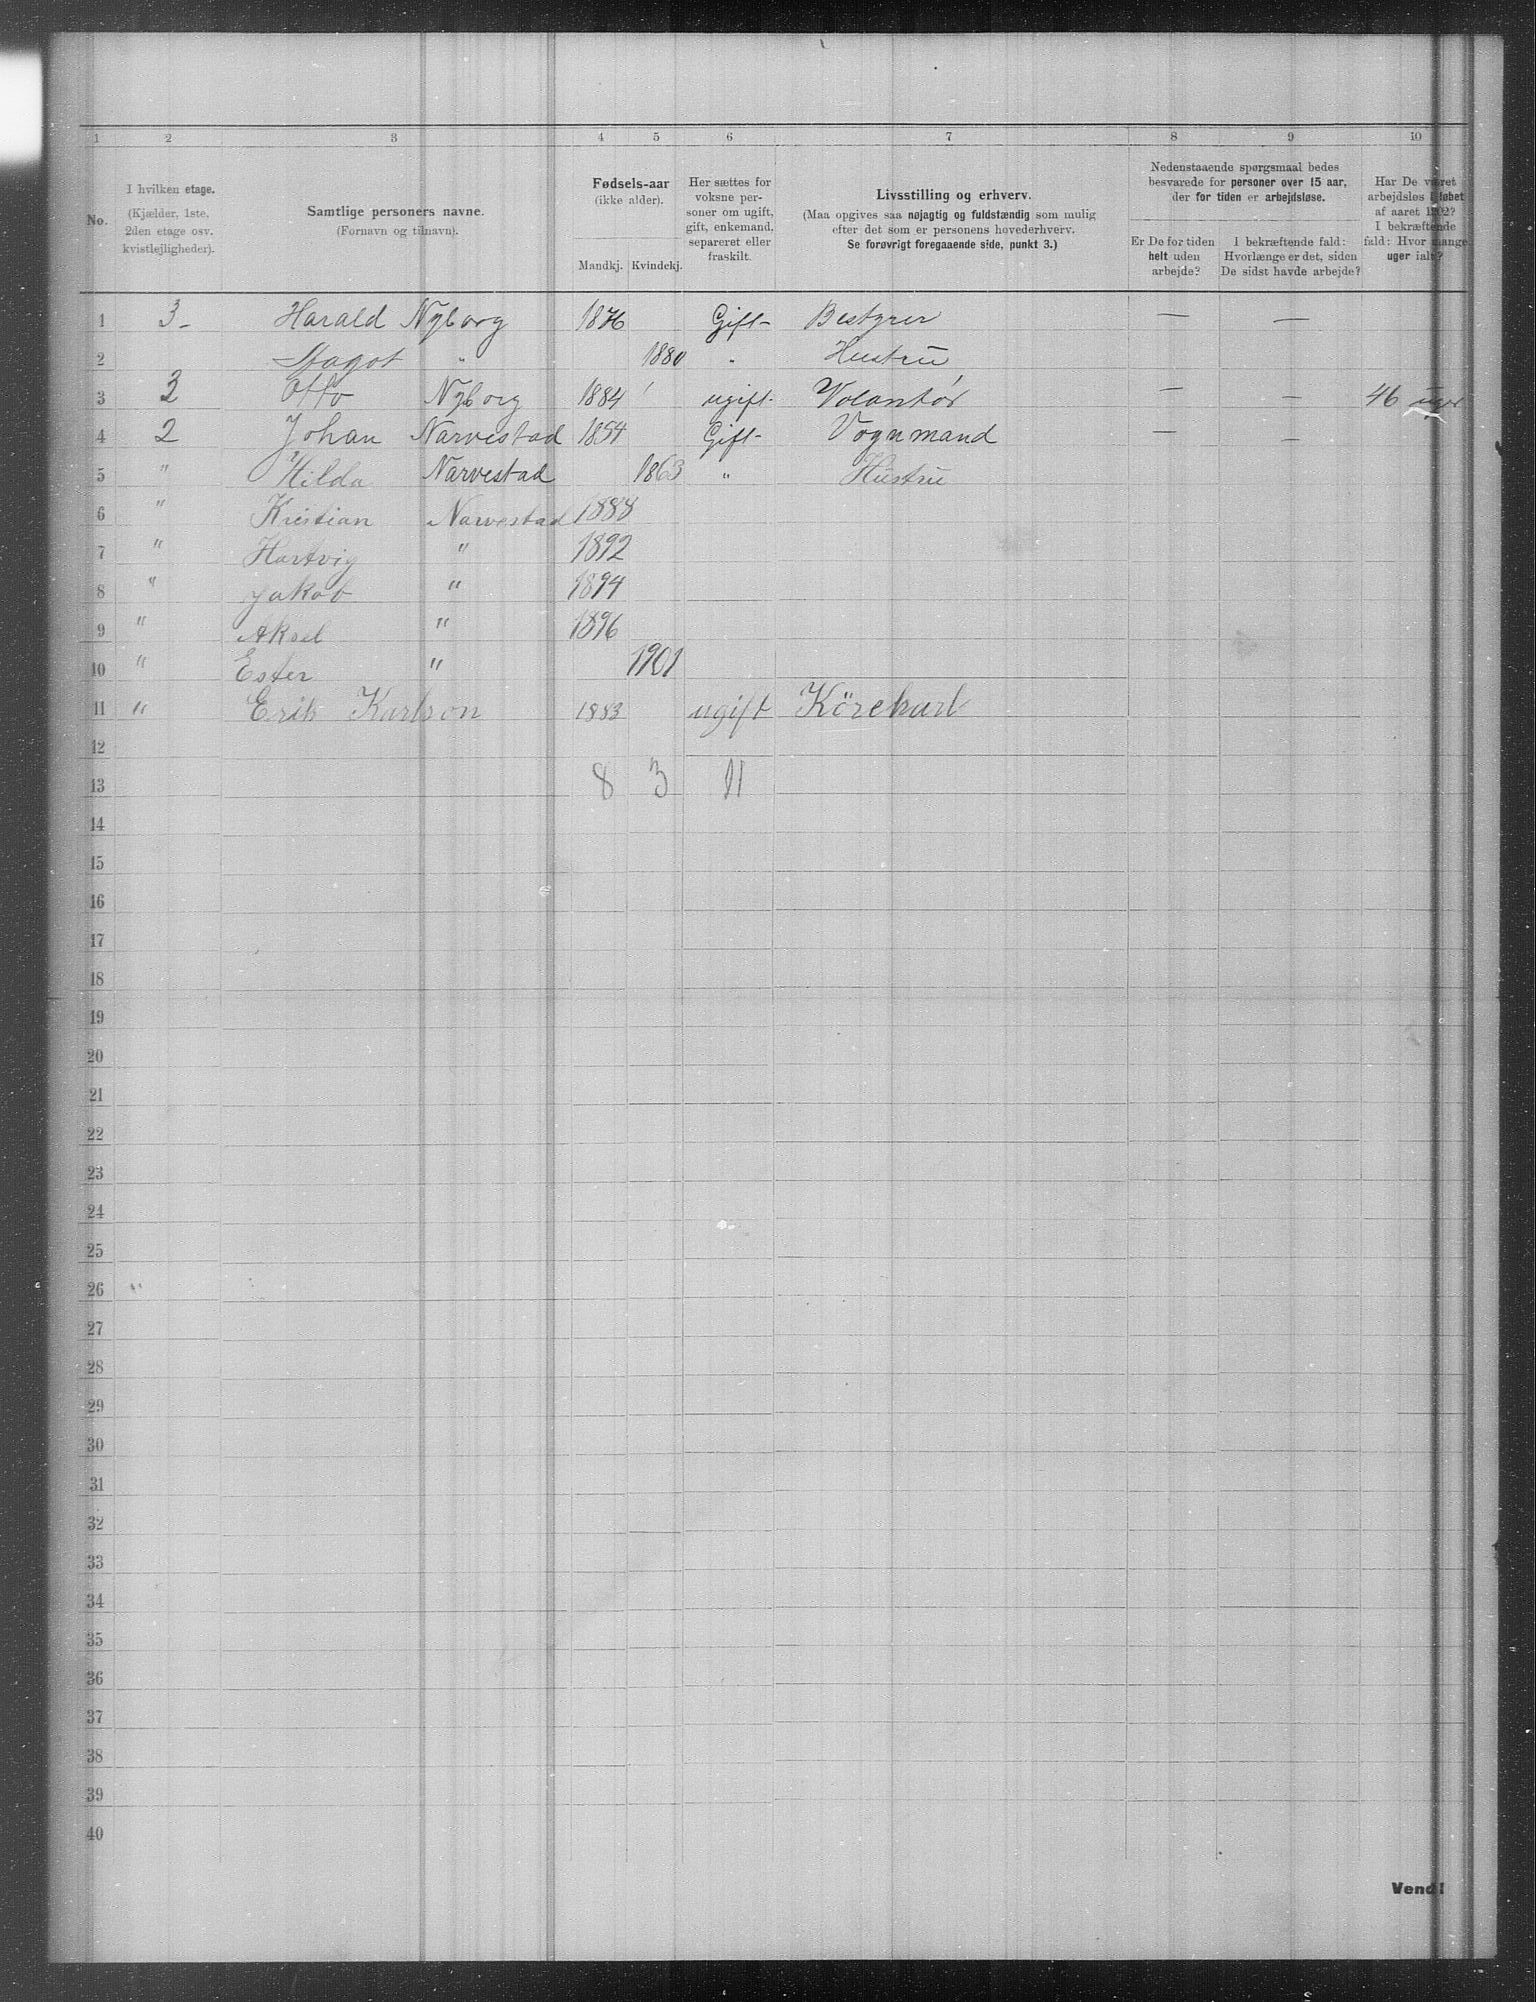 1 2 3 4 5 6 7 8 9 10
No.
I hvilken etage.
(Kjælder, 1ste,
2den etage osv.
kvistlejligheder).
Samtlige personers navne.
(Fornavn og tilnavn).
Fødsels-aar
(ikke alder).
Mandkj. Kvindekj.
Her sættes for
voksne per-
soner om ugift,
gift, enkemand,
separeret eller
fraskilt.
Livsstilling og erhverv.
(Maa opgives saa nøjagtig og fuldstændig som mulig
efter det som er personens hovederhverv.
Se forøvrigt foregaaende side, punkt 3.)
Nedenstaaende spørgsmaal bedes
besvarede for personer over 15 aar,
der for tiden er arbejdsløse.
Er De for tiden
helt uden
arbejde?
I bekræftende fald:
Hvorlænge er det, siden
De sidst havde arbejde?
Har De været
arbejdsløs i løbet
af aaret 1902?
I bekræftende
fald: Hvor mange
uger ialt?
1 3- Harald Nyborg 1876 Gift- Bestyrer — —
2 " 1880 " Hustru
3 3 Otto Nyborg 1884 ugift- Volontør — — 46 uger
4 2 Johan Narvestad 1854 Gift- Vognmand — —
5 " Hilda Narvestad 1863 " Hustru
6 " Kristian Narvestad 1888
7 " Hartvig " 1892
8 " Jakob " 1894
9 " Aksel " 1896
10 " Ester " 1901
11 " Erik Karlson 1883 ugift Körekarl
12
13 8 3 11
14
15
16
17
18
19
20
21
22
23
24
25
26
27
28
29
30
31
32
33
34
35
36
37
38
39
40
Vend!